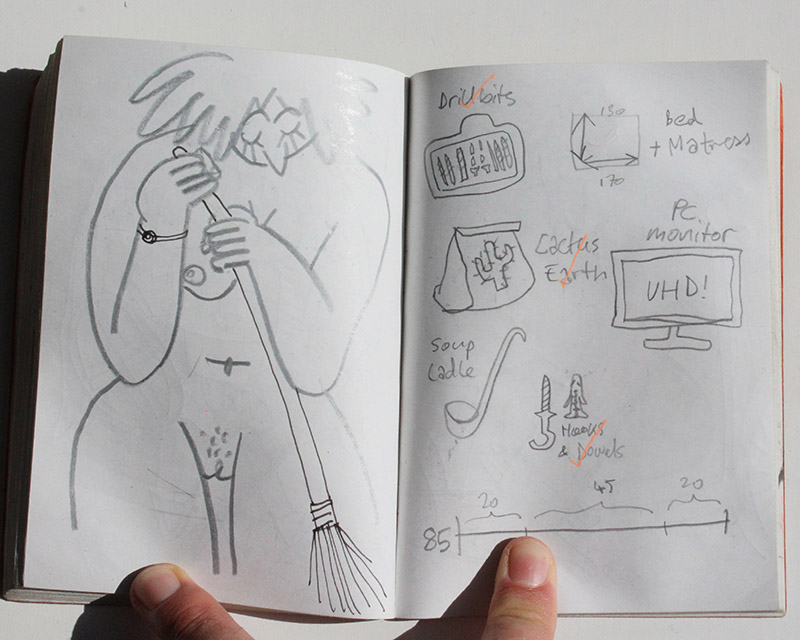 Drill bits
130
170
bed
+ Matress
Cactus
Earth
PC
monitor
UHD!
Soup
Ladle
Hooks
& Dowels
20
45
20
85